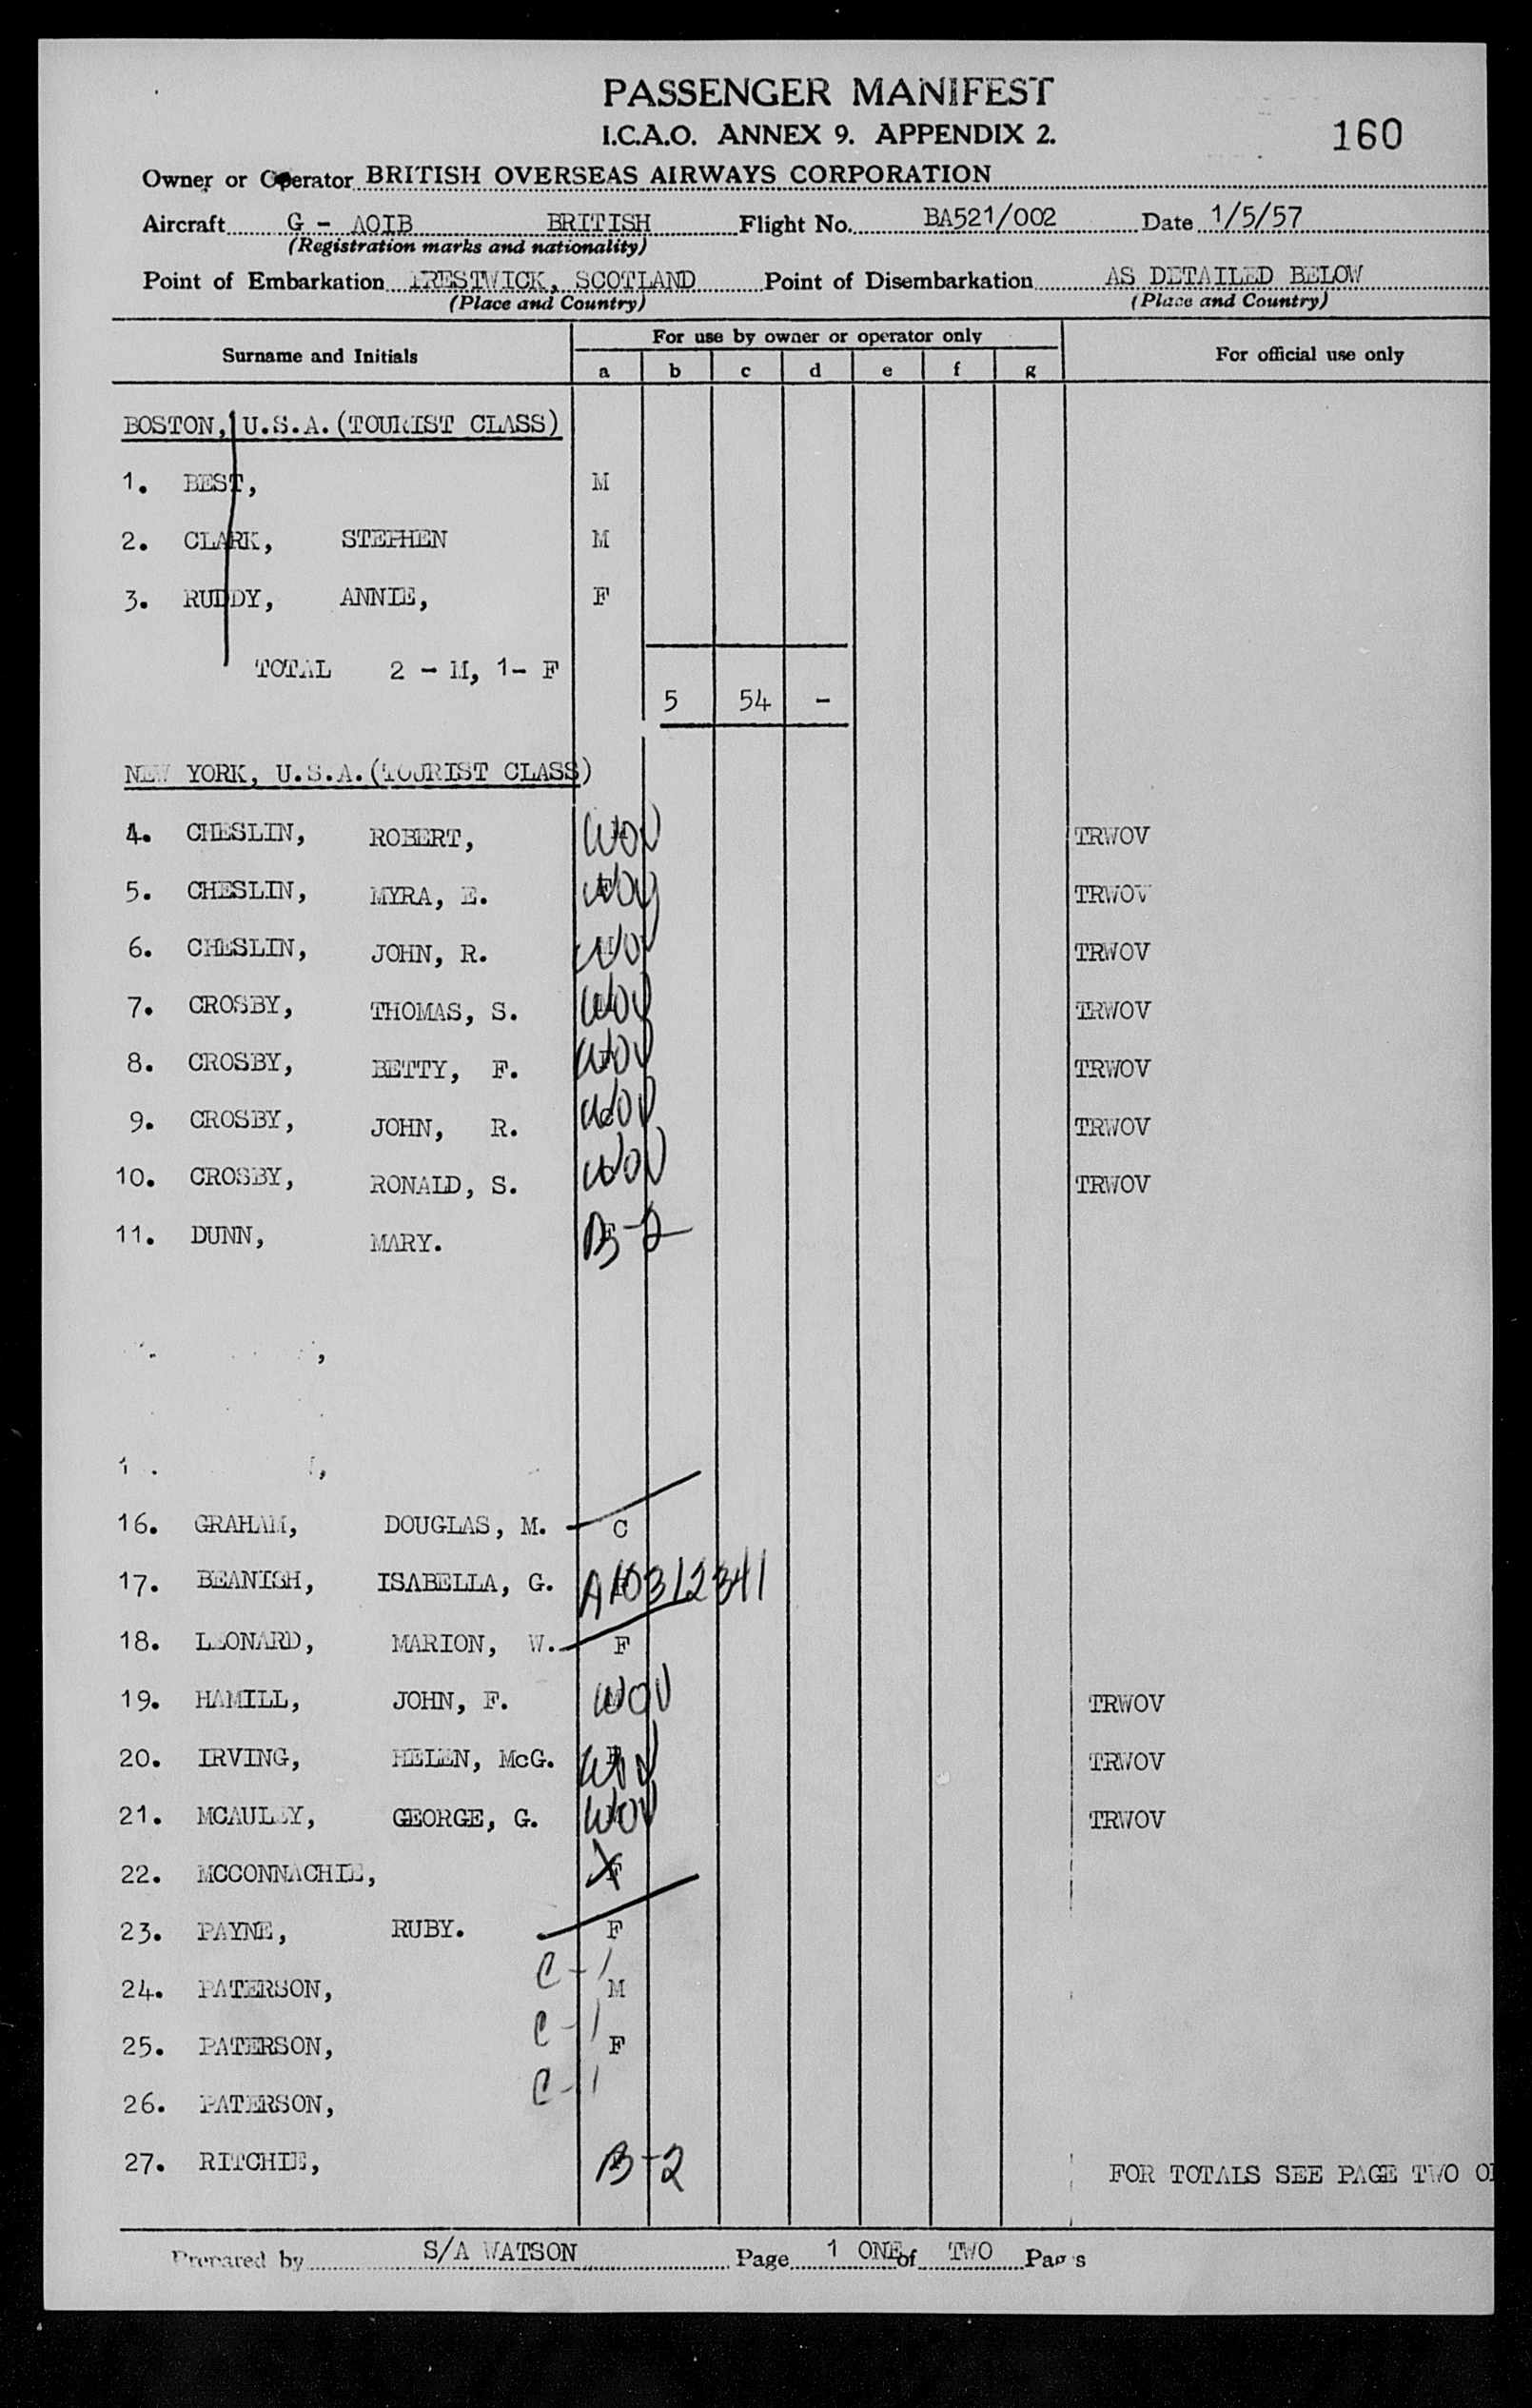 PASSENGER MANIFEST
I.C.A.O. ANNEX 9. APPENDIX 2.
160
Owner or Operator BRITISH OVERSEAS AIRWAYS CORPORATION
Aircraft G - AOIB BRITISH Flight No. BA521/002 Date 1/5/57
(Registration marks and nationality)
Point of Embarkation PRESTWICK, SCOTLAND Point of Disembarkation AS DETAILED BELOW
(Place and Country) (Place and Country)
Surname and Initials For use by owner or operator only For official use only
a b c d e f g
BOSTON, U.S.A. (TOURIST CLASS)
1. BEST, M
2. CLARK, STEPHEN M
3. RUDDY, ANNIE, F
TOTAL 2 - M, 1- F
5 54 -
NEW YORK, U.S.A. (TOURIST CLASS)
4. CHESLIN, ROBERT, WOV TRWOV
5. CHESLIN, MYRA, E. WOV TRWOV
6. CHESLIN, JOHN, R. WOV TRWOV
7. CROSBY, THOMAS, S. WOV TRWOV
8. CROSBY, BETTY, F. WOV TRWOV
9. CROSBY, JOHN, R. WOV TRWOV
10. CROSBY, RONALD, S. WOV TRWOV
11. DUNN, MARY. B-2
16. GRAHAM, DOUGLAS, M. C
17. BEANISH, ISABELLA, G. A10312341
18. LEONARD, MARION, W. F
19. HAMILL, JOHN, F. WOV TRWOV
20. IRVING, HELEN, McG. WOV TRWOV
21. MCAULEY, GEORGE, G. WOV TRWOV
22. MCCONNACHIE, X F
23. PAYNE, RUBY. F
24. PATERSON, C-1 M
25. PATERSON, C-1 F
26. PATERSON, C-1
27. RITCHIE, B-2 FOR TOTALS SEE PAGE TWO
Prepared by S/A WATSON Page 1 ONE of TWO Pages